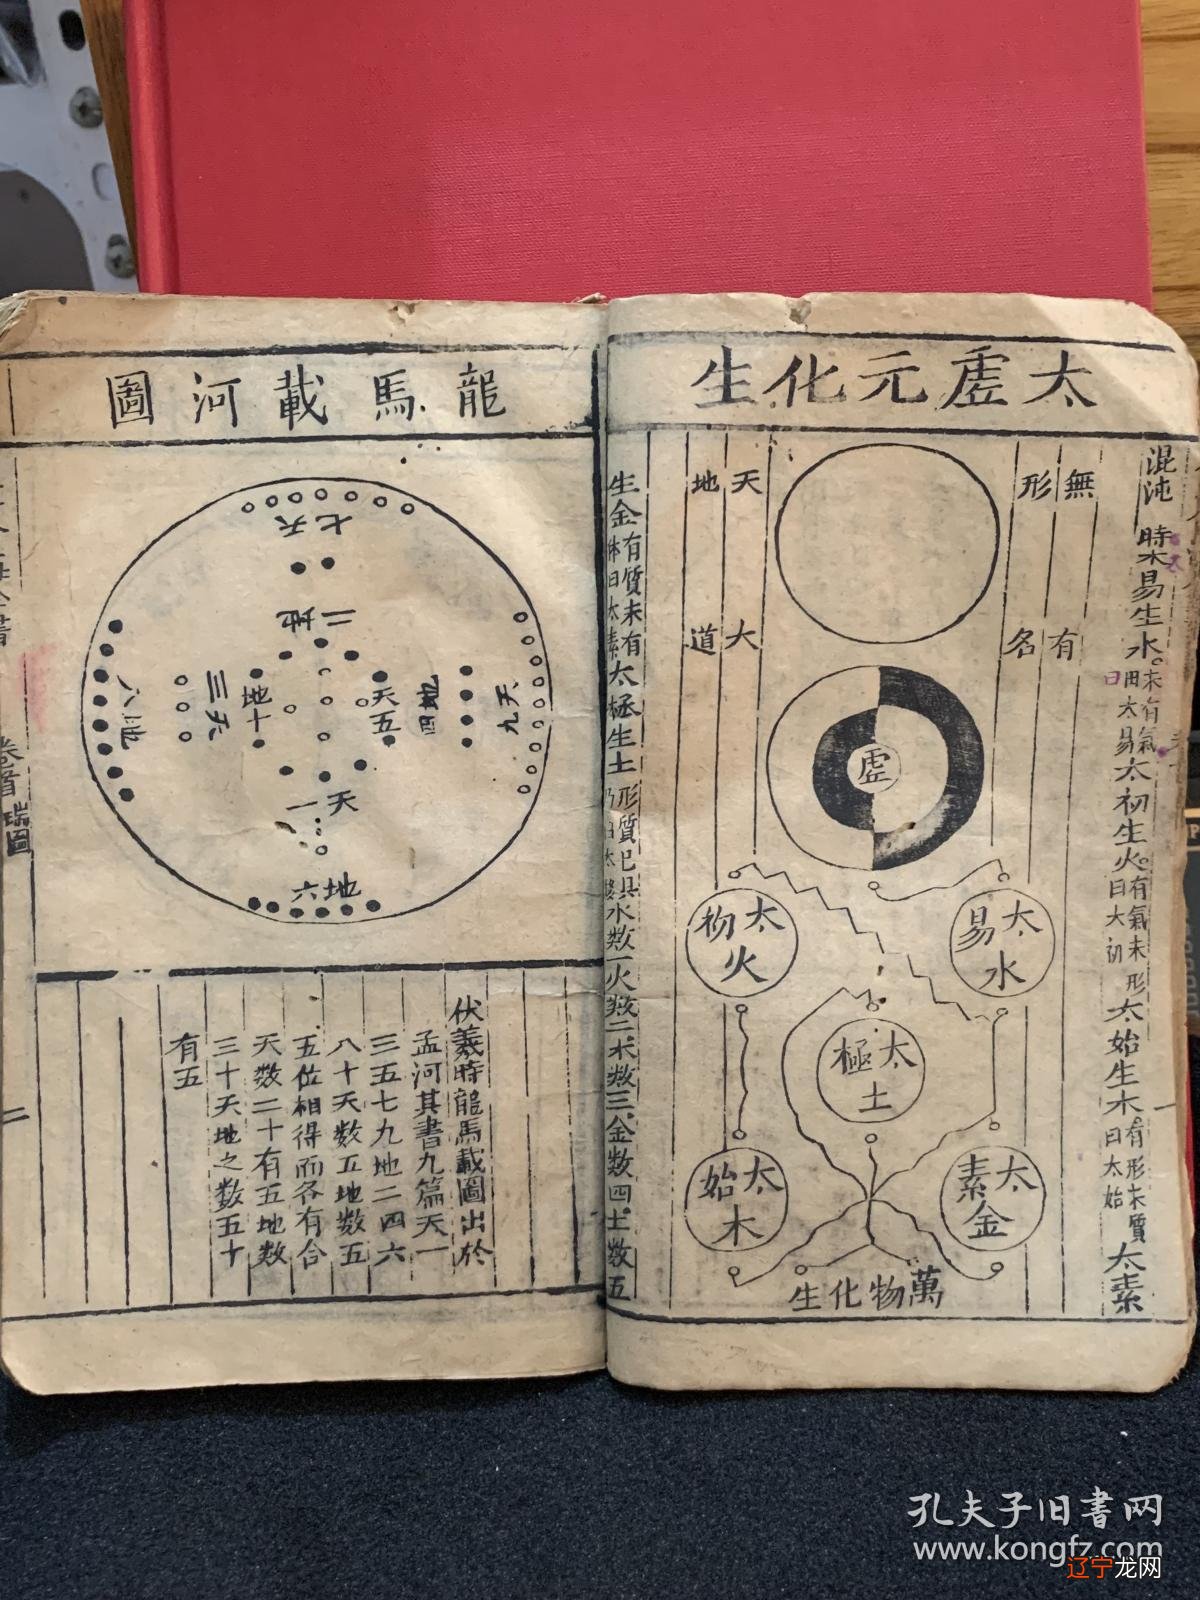 太虛元化生
混沌 時太易生水 未有氣曰太易 太初生火 有氣未形曰大初 太始生木 有形未質曰太始 太素
無形
有名
虛
天地
大道
太易水
太初火
太極土
太素金
太始木
萬物化生
生金 有質未有体曰太素 太極生土 形質已具乃曰太極 水数一火数二木数三金数四土数五
龍馬載河圖
天七
地二
天九
地四
天五
地十
天三
地八
天一
地六
伏羲時龍馬載圖出於
孟河其書九篇天一
三五七九地二四六
八十天数五地数五
五位相得而各有合
天数二十有五地数
三十天地之数五十
有五
卷首 瑞圖
二
孔夫子旧书网
www.kongfz.com
辽宁龙网